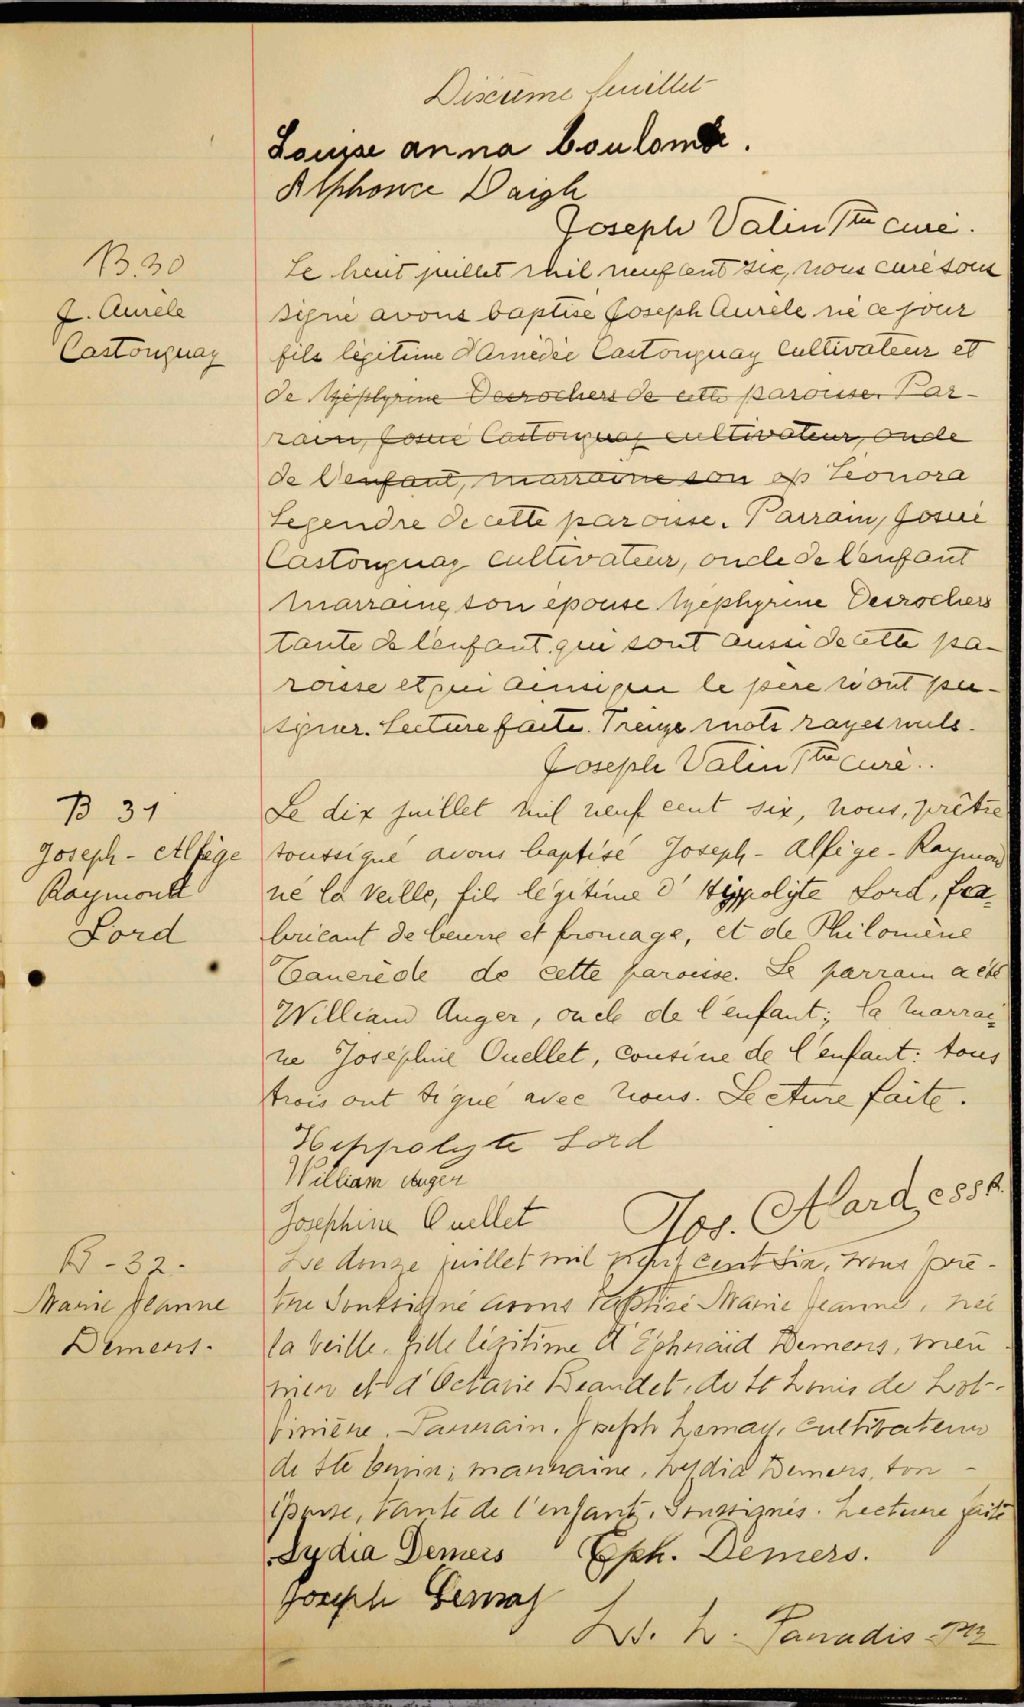 Dixième feuillet
Louise anna Coulombe.
Alphonse Daigle
Joseph Valin Ptre curé.
B. 30
J. Aurèle
Castonguay
Le huit juillet mil neuf cent six, nous curé sous
signé avons baptisé Joseph Aurèle né ce jour
fils légitime d'Amédée Castonguay cultivateur et
de Zéphyrine Desrochers de cette paroisse. Par-
rain, Josué Castonguay cultivateur, oncle
de l'enfant, marraine son ep Léonora
Legendre de cette paroisse. Parrain, Josué
Castonguay cultivateur, oncle de l'enfant
marraine, son épouse Zéphyrine Desrochers
tante de l'enfant qui sont aussi de cette pa-
roisse et qui ainsi que le père n'ont pu
signer. Lecture faite. Treize mots rayés nuls.
Joseph Valin Ptre curé.
B 31
Joseph - Alfège
Raymond
Lord
Le dix juillet mil neuf cent six, nous, prêtre
soussigné avons baptisé Joseph - Alfège - Raymond
né la veille, fils légitime d'Hippolyte Lord, fa-
bricant de beurre et fromage, et de Philomène
Tancrède de cette paroisse. Le parrain a été
William Auger, oncle de l'enfant; la marrai-
ne Joséphine Ouellet, cousine de l'enfant: tous
trois ont signé avec nous. Lecture faite.
Hippolyte Lord
William Auger
Josephine Ouellet
Jos. Alard, cssr.
B - 32 -
Marie Jeanne
Demers.
Le douze juillet mil neuf cent six, nous prê-
tre soussigné avons baptisé Marie Jeanne, née
la veille, fille légitime d'Ephraïd Demers, meu
nier et d'Octavie Beaudet, de St Louis de Lot-
binière. Parrain, Joseph Lemay, cultivateur
de Ste Croix; marraine, Lydia Demers, son -
épouse, tante de l'enfant, soussignés. Lecture faite
Lydia Demers Eph. Demers.
Joseph Lemay
Ls. L. Paradis